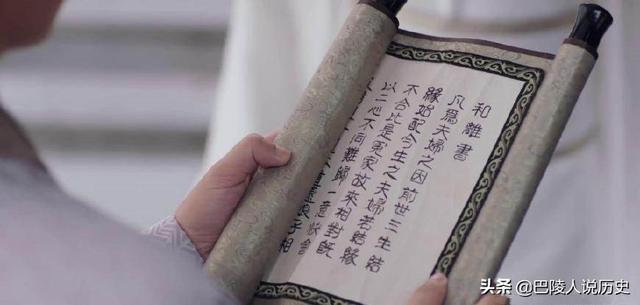 和離書
凡爲夫婦之因前世三生結
緣始配今生之夫婦若結緣
不合比是冤家故來相對既
以二心不同難歸一意快會
頭条 @巴陵人说历史